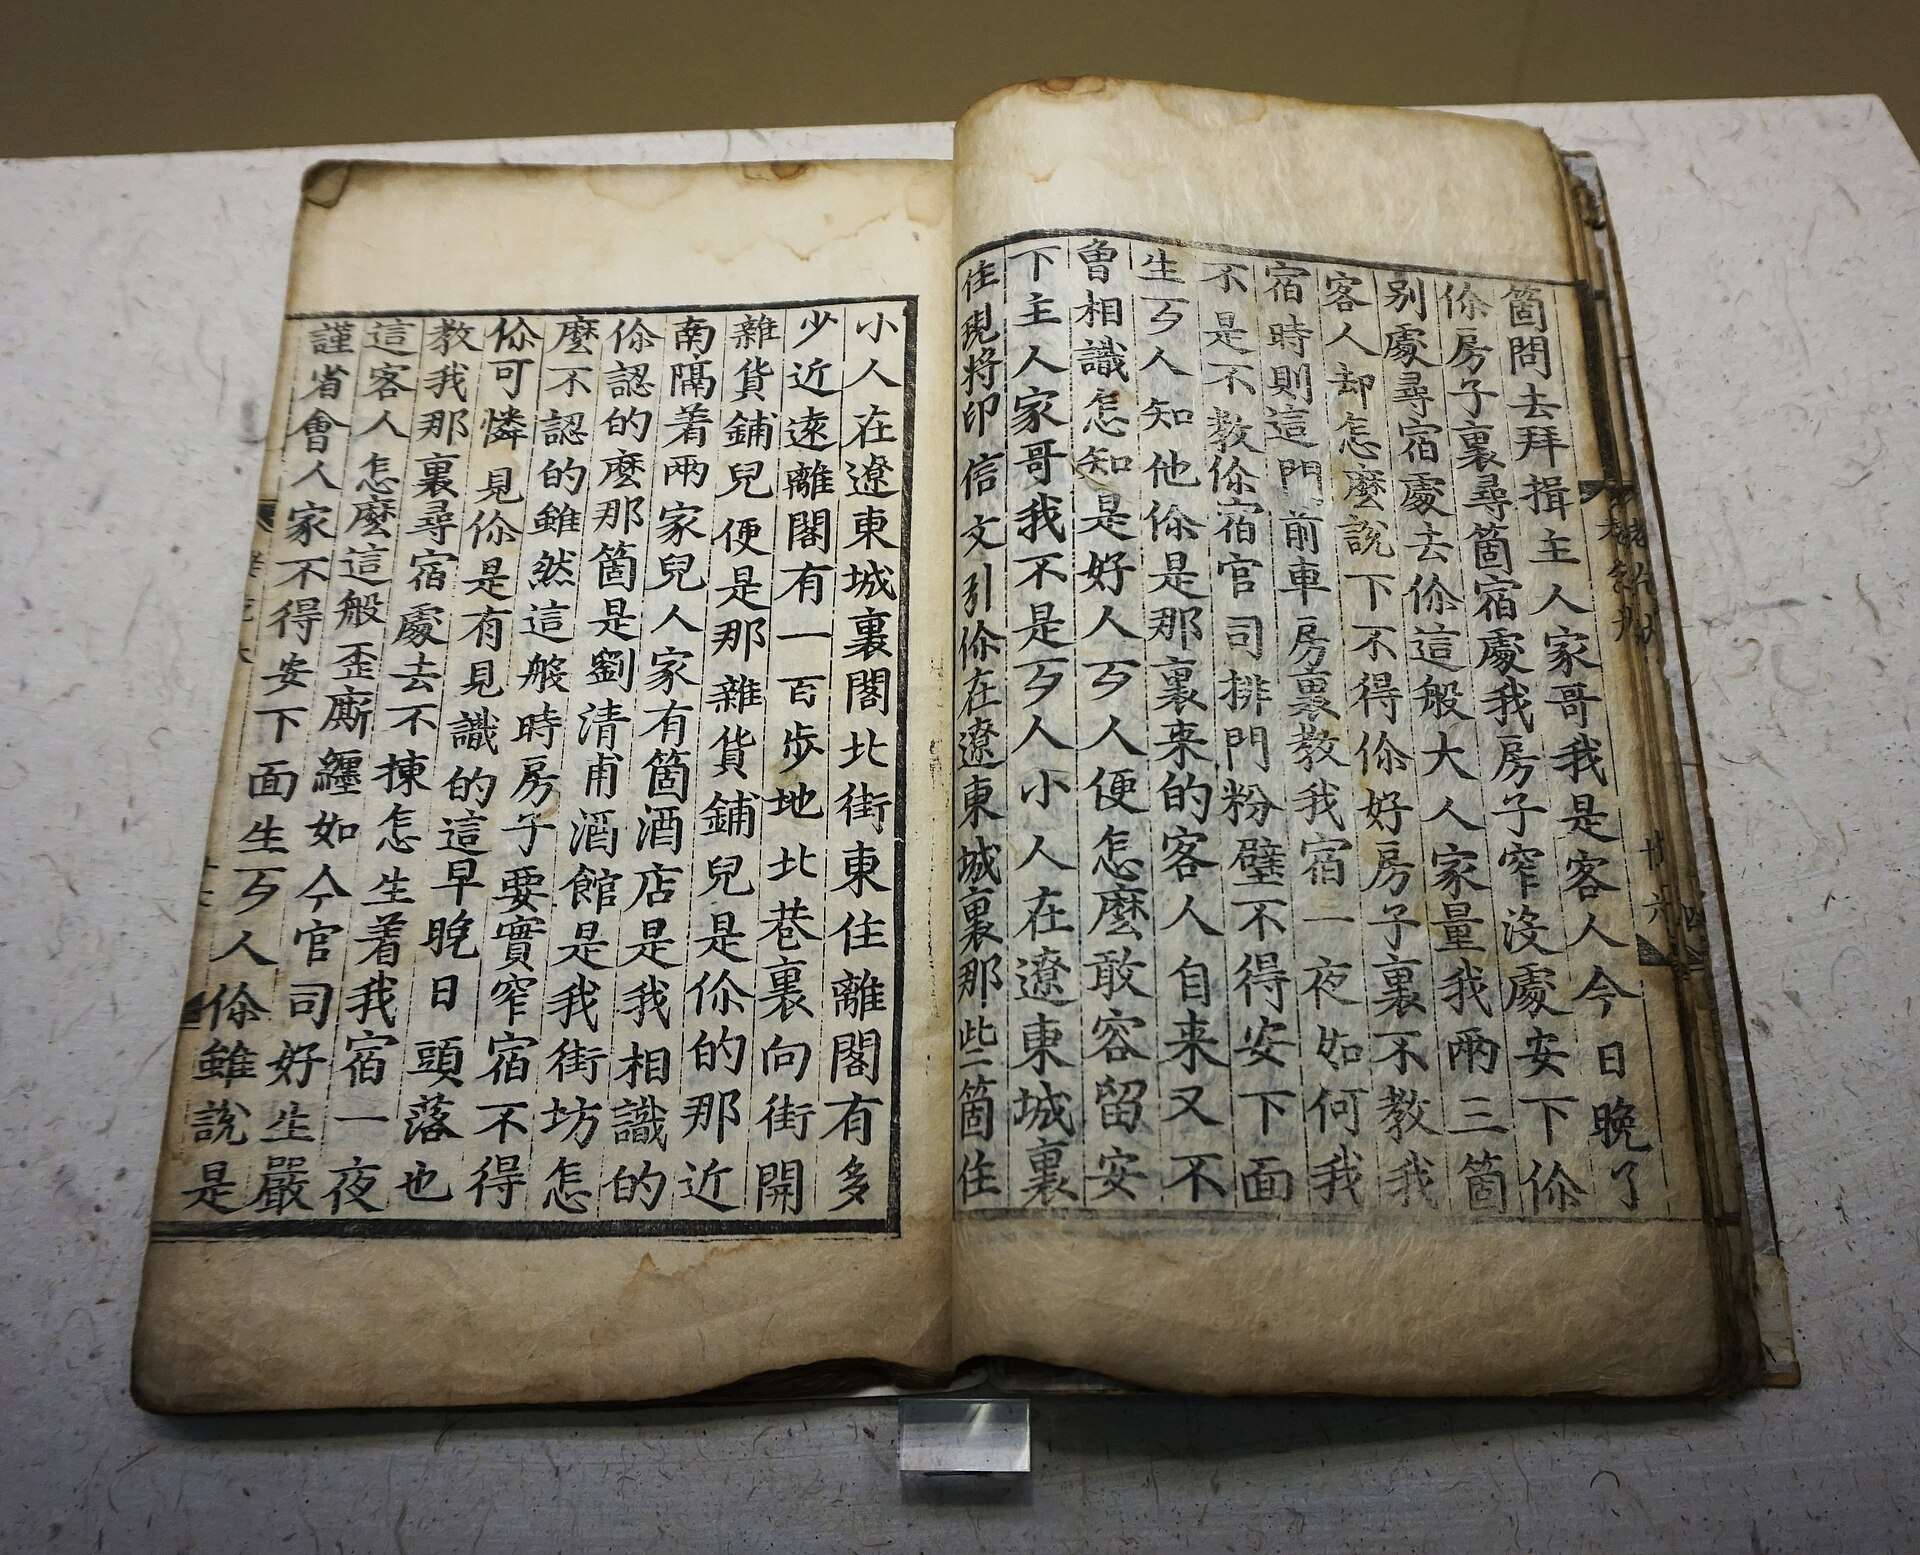 箇問去拜揖主人家哥我是客人今日晚了
伱房子裏尋箇宿處我房子窄沒處安下伱
别處尋宿處去伱這般大人家量我兩三箇
客人却怎麽說下不得伱好房子裏不教我
宿時則這門前車房裏教我宿一夜如何我
不是不教伱宿官司排門粉壁不得安下面
生歹人知他伱是那裏来的客人自来又不
曾相識怎知是好人歹人便怎麽敢容留安
下主人家哥我不是歹人小人在遼東城裏
住現將印信文引伱在遼東城裏那些箇住
小人在遼東城裏閣北街東住離閣有多
少近遠離閣有一百步地北巷裏向街開
雜貨鋪兒便是那雜貨鋪兒是伱的那近
南隔着兩家兒人家有箇酒店是我相識的
伱認的麽那箇是劉清甫酒館是我街坊怎
麽不認的雖然這般時房子要實窄宿不得
伱可憐見伱是有見識的這早晚日頭落也
教我那裏尋宿處去不揀怎生着我宿一夜
這客人怎麽這般歪廝纏如今官司好生嚴
謹省會人家不得安下面生歹人伱雖說是